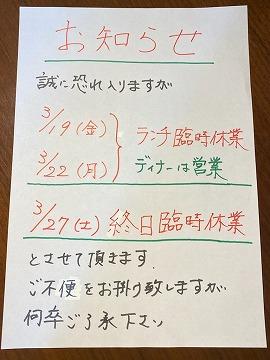 お知らせ
誠に恐れ入りますが
3/19(金) ランチ臨時休業
3/22(月) ディナーは営業
3/27(土) 終日臨時休業
とさせて頂きます.
ご不便をお掛け致しますが
何卒ご了承下さい